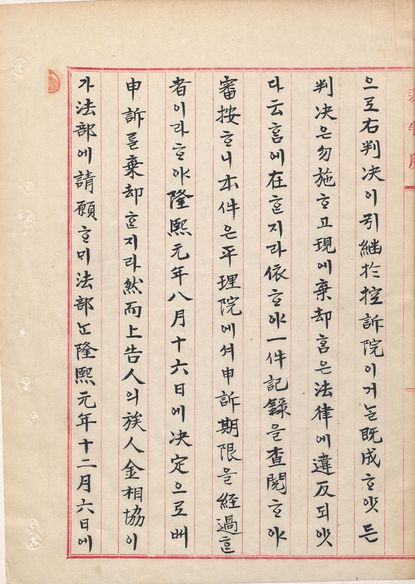 으로右判决이引繼於控訴院이거늘既成ᄒᆞ얏든
判决은勿施ᄒᆞ고現에棄却홈은法律에違反되얏
다云홈에在ᄒᆞᆫ지라依ᄒᆞ야一件記錄을查閱ᄒᆞ야
審按ᄒᆞ니本件은平理院에셔申訴期限을經過ᄒᆞᆫ
者이라ᄒᆞ야隆熙元年八月十六日에决定으로ᄡᅥ
申訴를棄却ᄒᆞᆫ지라然而上告人의族人金相協이
가法部에請願ᄒᆞᄆᆡ法部ᄂᆞᆫ隆熙元年十二月六日에